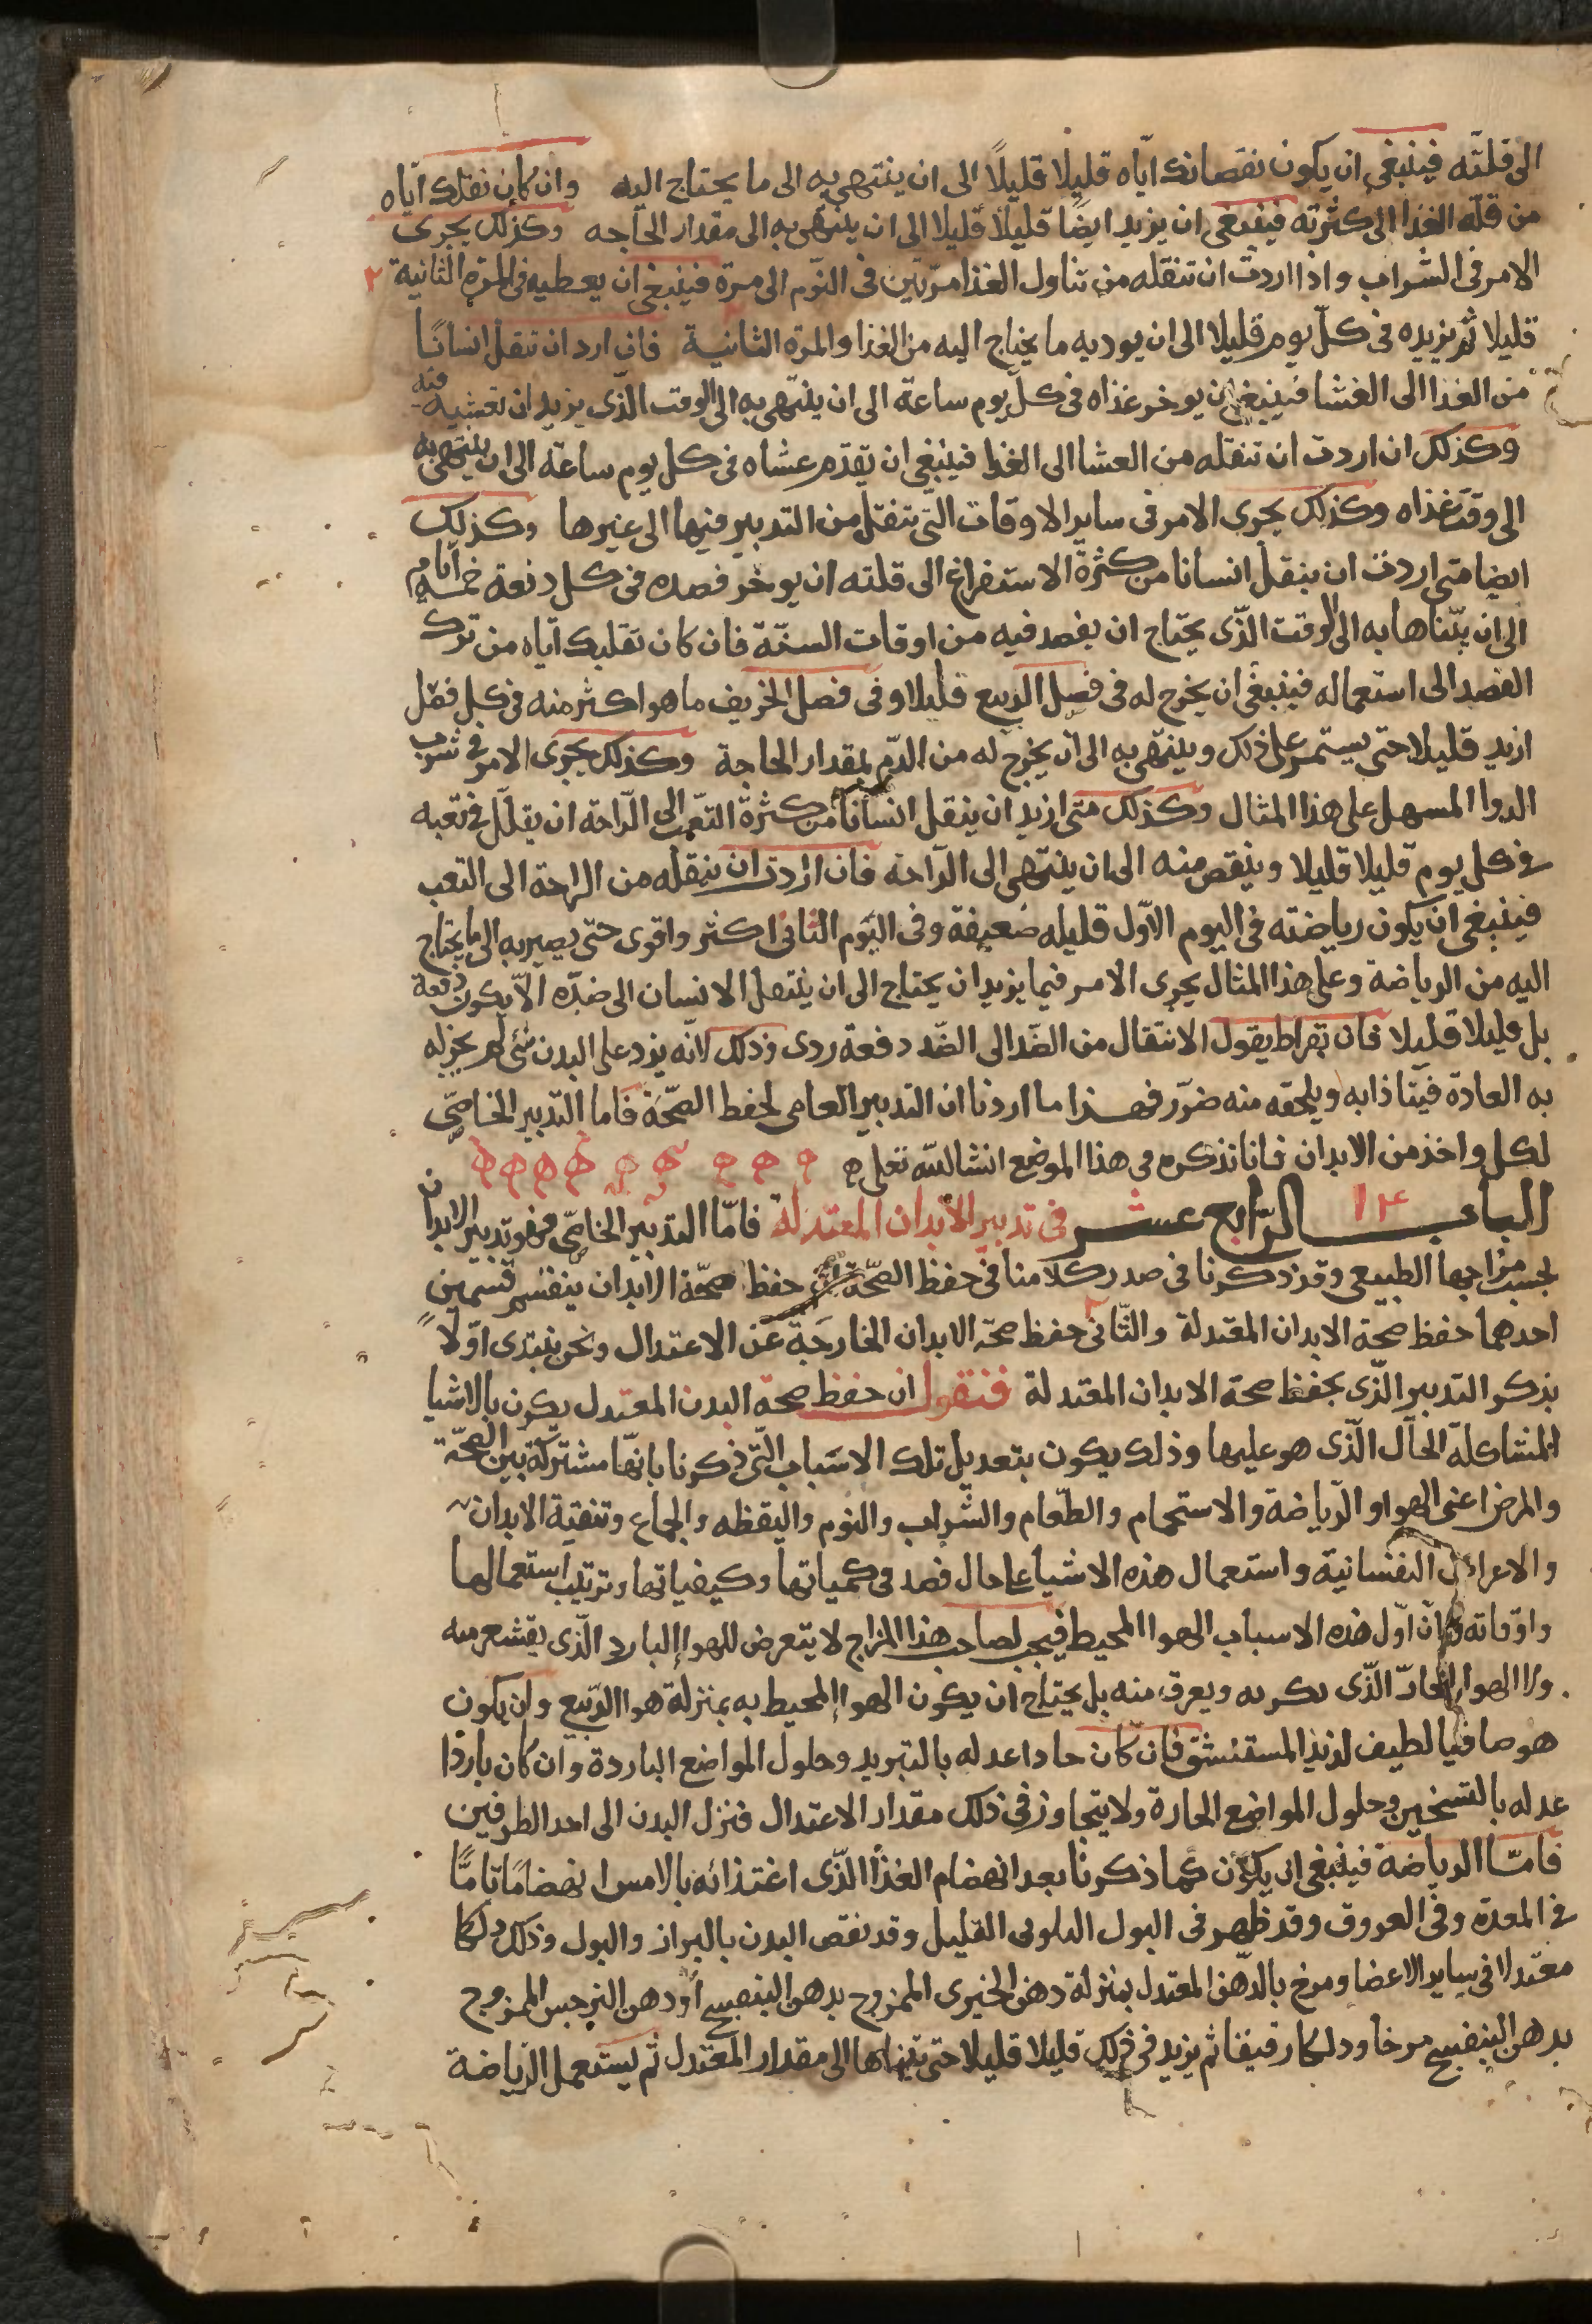 الى قلته فينبغى ان يكون نقصانك اياه قليلا قليلًا الى ان ينتهى به الى ما يحتاج اليه وان كان نقلك اياه
من قلة الغذا الى كثرته فينبغى ان يزيد ايضًا قليلا قليلا الى ان ينتهى به الى مقدار الحاجه وكذلك يجرى
الامر فى الشراب واذا اردت ان تنقله من تناول الغذا مرتين فى اليوم الى مرة فينبغى ان يعطيه فى المرة الثانية ٢
قليلا ثم يزيده فى كل يوم قليلا الى ان يوديه ما يحتاج اليه من الغذا والمرة الثانية فان اردت ان تنقل انسانًا
من الغدا الى العشا فينبغى ان يوخر غذاه فى كل يوم ساعة الى ان ينتهى به الى الوقت الذى يريد ان تعشيه فيه
وكذلك ان اردت ان تنقله من العشا الى الغدا فينبغى ان يقدم عشاه فى كل يوم ساعة الى ان ينتهى به
الى وقت غذاه وكذلك يجرى الامر فى ساير الاوقات التى تنقل من التدبير فيها الى غيرها وكذلك
ايضا متى اردت ان ينقل انسانا من كثرة الاستفراغ الى قلته ان يوخر فصده فى كل دفعة خمسة ايام
الى ان يتناها به الى الوقت الذى يحتاج ان يفصد فيه من اوقات السنة فان كان نقلك اياه من ترك
الفصد الى استعماله فينبغى ان يخرج له فى فصل الربيع قليلا وفى فصل الخريف ما هو اكثر منه فى كل فصل
ازيد قليلا حتى يستمر على ذلك وينتهى به الى ان يخرج له من الدم بمقدار الحاجة وكذلك يجرى الامر فى شرب
الدوا المسهل على هذا المثال وكذلك متى اريد ان ينقل انسانا من كثرة التعب الى الراحة ان يقلل فى تعبه
فى كل يوم قليلا قليلا وينقص منه الى ان ينتهى الى الراحة فان اردت ان تنقله من الراحة الى التعب
فينبغى ان يكون رياضته فى اليوم الاول قليله ضعيفة وفى اليوم الثانى اكثر واقوى حتى يصير به الى ما يحتاج
اليه من الرياضة وعلى هذا المثال يجرى الامر فيما يزيد ان يحتاج الى ان ينتقل الانسان الى ضده الا يكون دفعة
بل قليلا قليلا فان بقراط يقول الانتقال من الضد الى الضد دفعة ردى وذلك لانه يرد على البدن شى لم يجر له
به العادة فيتاذا به ويلحقه منه ضرر فهذا ما اردنا ان التدبير العامى لحفظ الصحة فاما التدبير الخاصى
لكل واحد من الابدان فانا نذكره فى هذا الموضع انشا الله تعلى
الباب ١٤ الرابع عشر فى تدبير الابدان المعتدلة فاما التدبير الخاصى فهو تدبير الابدان
بحسب مزاجها الطبيعى وقد ذكرنا فى صدر كلامنا فى حفظ الصحة ان حفظ صحة الابدان ينقسم قسمين
احدهما حفظ صحة الابدان المعتدلة والثانى حفظ صحة الابدان الخارجة عن الاعتدال ونحن نبتدى اولًا
بذكر التدبير الذى بحفظ صحة الابدان المعتدلة فنقول ان حفظ صحة البدن المعتدل يكون بالاشيا
المشاكلة الحال الذى هو عليها وذلك يكون بتعديل تلك الاسباب التى ذكرنا بانها مشتركة بين الصحة
والمرض اعنى الهوا والرياضة والاستحمام والطعام والشراب والنوم واليقظه والجماع وتنقية الابدان
والاعراض النفسانية واستعمال هذه الاشيا على حال قصد فى كمياتها وكيفياتها وترتيب استعمالها
واوقاته وان اول هذه الاسباب الهوا المحيط فيجب لصاحب هذا المزاج لا يتعرض للهوا البارد الذى يقشعر منه
ولا الهوا الحار الذى يكربه ويعرق منه بل يحتاج ان يكون الهوا المحيط به بمنزلة هوا الربيع وان يكون
هو صافيا لطيف لذيذ المستنشق فان كان حارا عدله بالتبريد وحلول المواضع الباردة وان كان باردا
عدله بالتسخين وحلول المواضع الحارة ولا يتجاوز فى ذلك مقدار الاعتدال فنزل البدن الى احد الطرفين
فاما الرياضة فينبغى ان يكون كما ذكرنا بعد انهضام الغذا الذى اغتذائه بالامس انهضامًا تامًا
فى المعدة وفى العروق وقد ظهر فى البول التلون القليل وقد نقص البدن بالبراز والبول وذلك دلكا
معتدلا فى ساير الاعضا ومرخ بالدهن المعتدل بمنزلة دهن الخيرى الممزوج بدهن البنفسج او دهن النرجس الممزوج
بدهن البنفسج مرخا ودلكا رقيقا ثم يزيد فى ذلك قليلا قليلا حتى يتناها الى مقدار المعتدل ثم يستعمل الرياضة